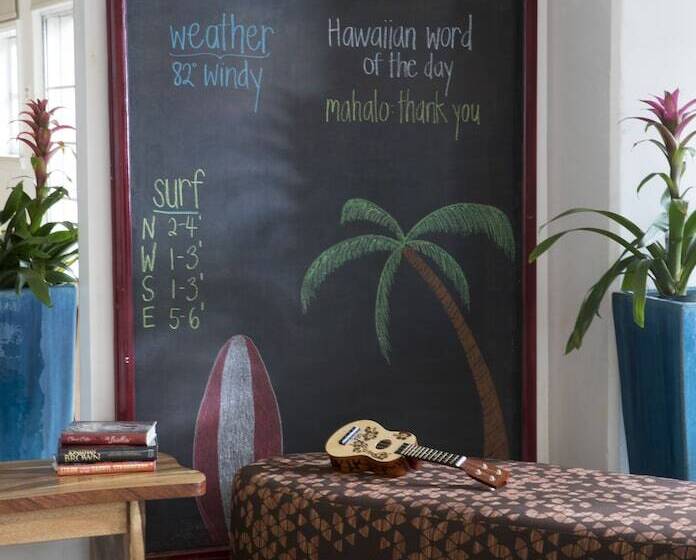 weather
82° Windy
Hawaiian word
of the day
mahalo: thank you
surf
N 2-4'
W 1-3'
S 1-3'
E 5-6'
BROWN